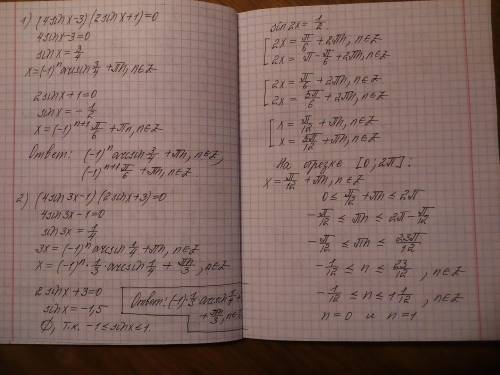 1) (4sinx-3)(2sinx+1)=0
4sinx-3=0
sinx=3/4
x=(-1)^n arcsin 3/4 + πn, n∈Z
2sinx+1=0
sinx=-1/2
x=(-1)^{n+1} π/6 + πn, n∈Z
Ответ: (-1)^n arcsin 3/4 + πn, n∈Z,
(-1)^{n+1} π/6 + πn, n∈Z
2) (4sin3x-1)(2sinx+3)=0
4sin3x-1=0
sin3x=1/4
3x=(-1)^n arcsin 1/4 + πn, n∈Z
x=(-1)^n · 1/3 · arcsin 1/4 + πn/3, n∈Z
2sinx+3=0
sinx=-1,5
∅, т.к. -1≤sinx≤1
Ответ: (-1)^n 1/3 arcsin 1/4 +
+ πn/3, n∈Z
sin2x=1/2
[ 2x=π/6+2πn, n∈Z
2x=π-π/6+2πn, n∈Z
[ 2x=π/6+2πn, n∈Z
2x=5π/6+2πn, n∈Z
[ x=π/12+πn, n∈Z
x=5π/12+πn, n∈Z
На отрезке [0;2π]:
x=π/12+πn, n∈Z
0≤π/12+πn≤2π
-π/12≤πn≤2π-π/12
-π/12≤πn≤23π/12
-1/12≤n≤23/12, n∈Z
-1/12≤n≤1 11/12, n∈Z
n=0 и n=1